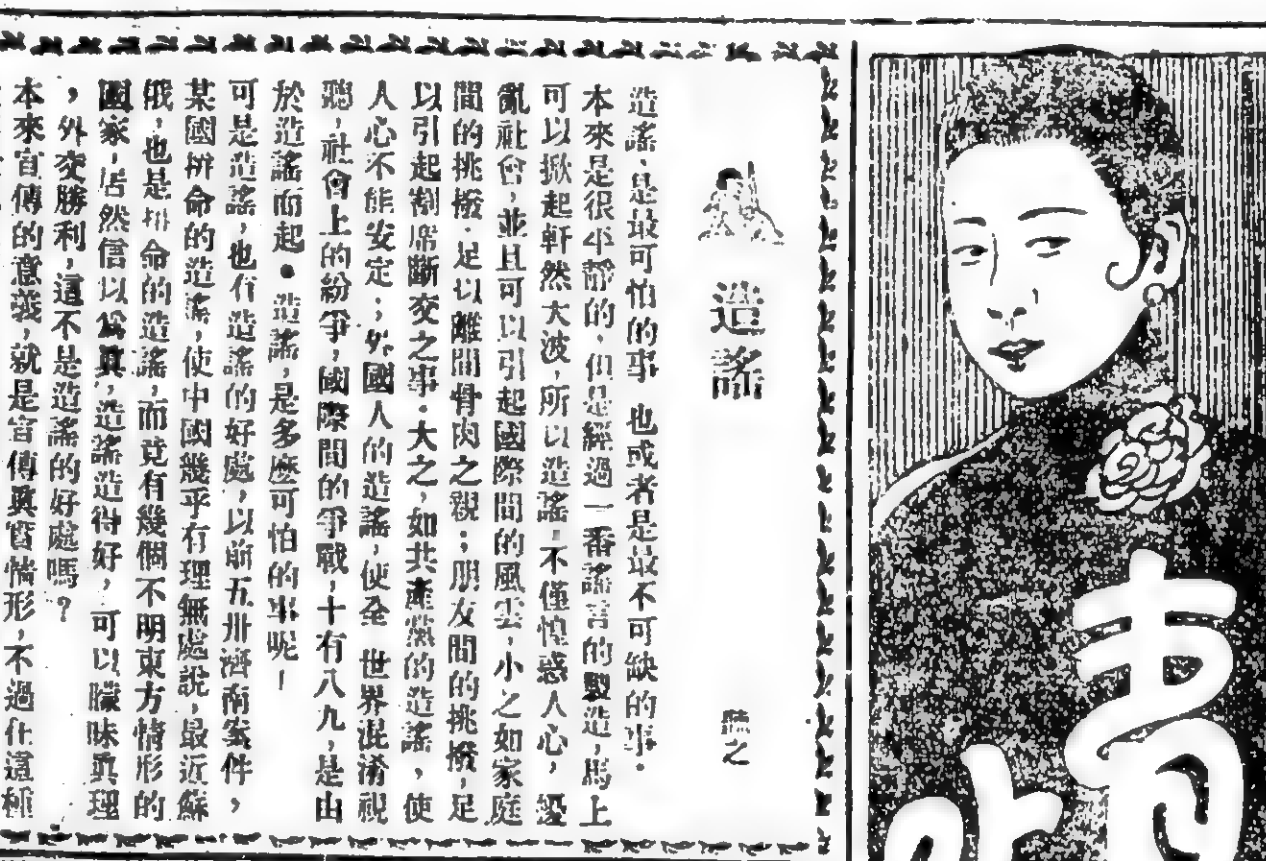 造謠
聽之
造謠,是最可怕的事 也或者是最不可缺的事。
本來是很平靜的,但是經過一番謠言的製造,馬上
可以掀起軒然大波,所以造謠,不僅惶惑人心,擾
亂社會,並且可以引起國際間的風雲,小之如家庭
間的挑撥,足以離間骨肉之親;朋友間的挑撥,足
以引起割席斷交之事。大之,如共產黨的造謠,使
人心不能安定;外國人的造謠,使全 世界混淆視
聽,社會上的紛爭,國際間的爭戰,十有八九,是由
於造謠而起。造謠,是多麼可怕的事呢!
可是造謠,也有造謠的好處,以前五卅濟南案件,
某國拚命的造謠,使中國幾乎有理無處說,最近蘇
俄,也是拚命的造謠,而竟有幾個不明東方情形的
國家,居然信以爲眞,造謠造得好,可以矇昧眞理
,外交勝利,這不是造謠的好處嗎?
本來宣傳的意義,就是宣傳眞實情形,不過在這種
靑